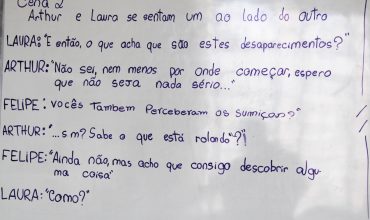 Cena 2
Arthur e Laura se sentam um ao lado do outro
LAURA: "E então, o que acha que são estes desaparecimentos?"
ARTHUR: "Não sei, nem menos por onde começar, espero
que não seja nada sério..."
FELIPE: vocês Tambem Perceberam os sumiços?"
ARTHUR: "...sm? Sabe o que está rolando"?!
FELIPE: "Ainda não, mas acho que consigo descobrir algu-
ma coisa"
LAURA: "Como?"